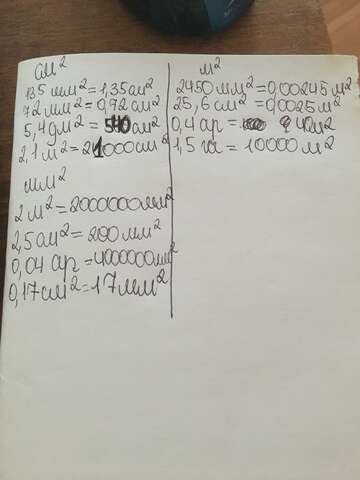 см²
135 мм² = 1,35 см²
72 мм² = 0,72 см²
5,4 дм² = 540 см²
2,1 м² = 21000 см²
мм²
2 м² = 2000000 мм²
2,5 см² = 200 мм²
0,04 ар = 4000000 мм²
0,17 см² = 17 мм²
м²
2450 мм² = 0,00245 м²
25,6 см² = 0,0025 м²
0,4 ар = 40 м²
1,5 га = 10000 м²